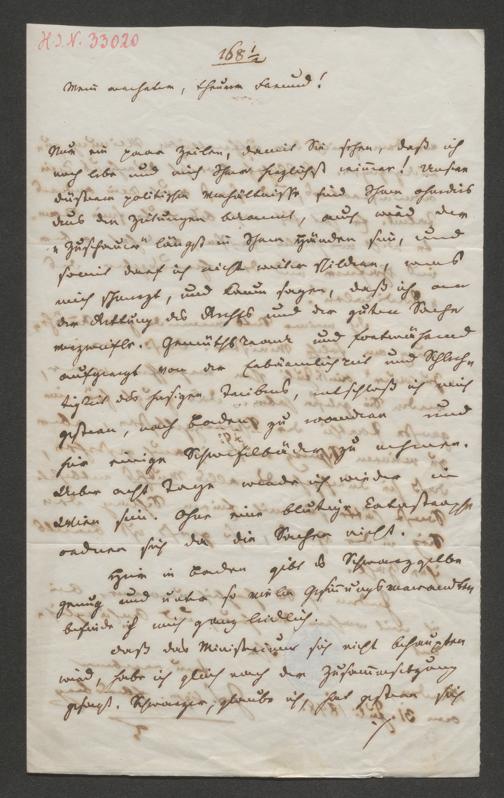 H.I.N. 33020
168 1/2
Mein verehrter, theurer Freund!
Nur ein paar Zeilen, damit Sie sehen, daß ich
noch lebe und mich Ihrer herzlichst erinnere! Unsere
düstern politischen Verhältnisse sind Ihnen ohnedies
aus den Zeitungen bekannt, auch wird der
"Zuschauer" längst in Ihren Händen sein, und
somit darf ich nicht weiter schildern, was
mich schmerzt, und kaum sagen, daß ich an
der Rettung des Rechts und der guten Sache
verzweifle. Gemüthskrank und fortwährend
aufgeregt von der Erbärmlichkeit und Schlech-
tigkeit des hiesigen Treibens, entschloß ich mich
gestern, nach Baden zu wandern und
hier einige Schwefelbäder zu nehmen.
Ueber acht Tage werde ich wieder in
Wien sein. Ohne eine blutige Catastrophe
ordnen sich da die Sachen nicht.
Hier in Baden gibt es Schwarzgelbe
genug und unter so vielen Gesinnungsverwandten
befinde ich mich ganz leidlich.
Daß das Ministerium sich nicht behaupten
wird, habe ich gleich nach der Zusammensetzung
gesagt. Schwarzer, glaube ich, hat gestern sich